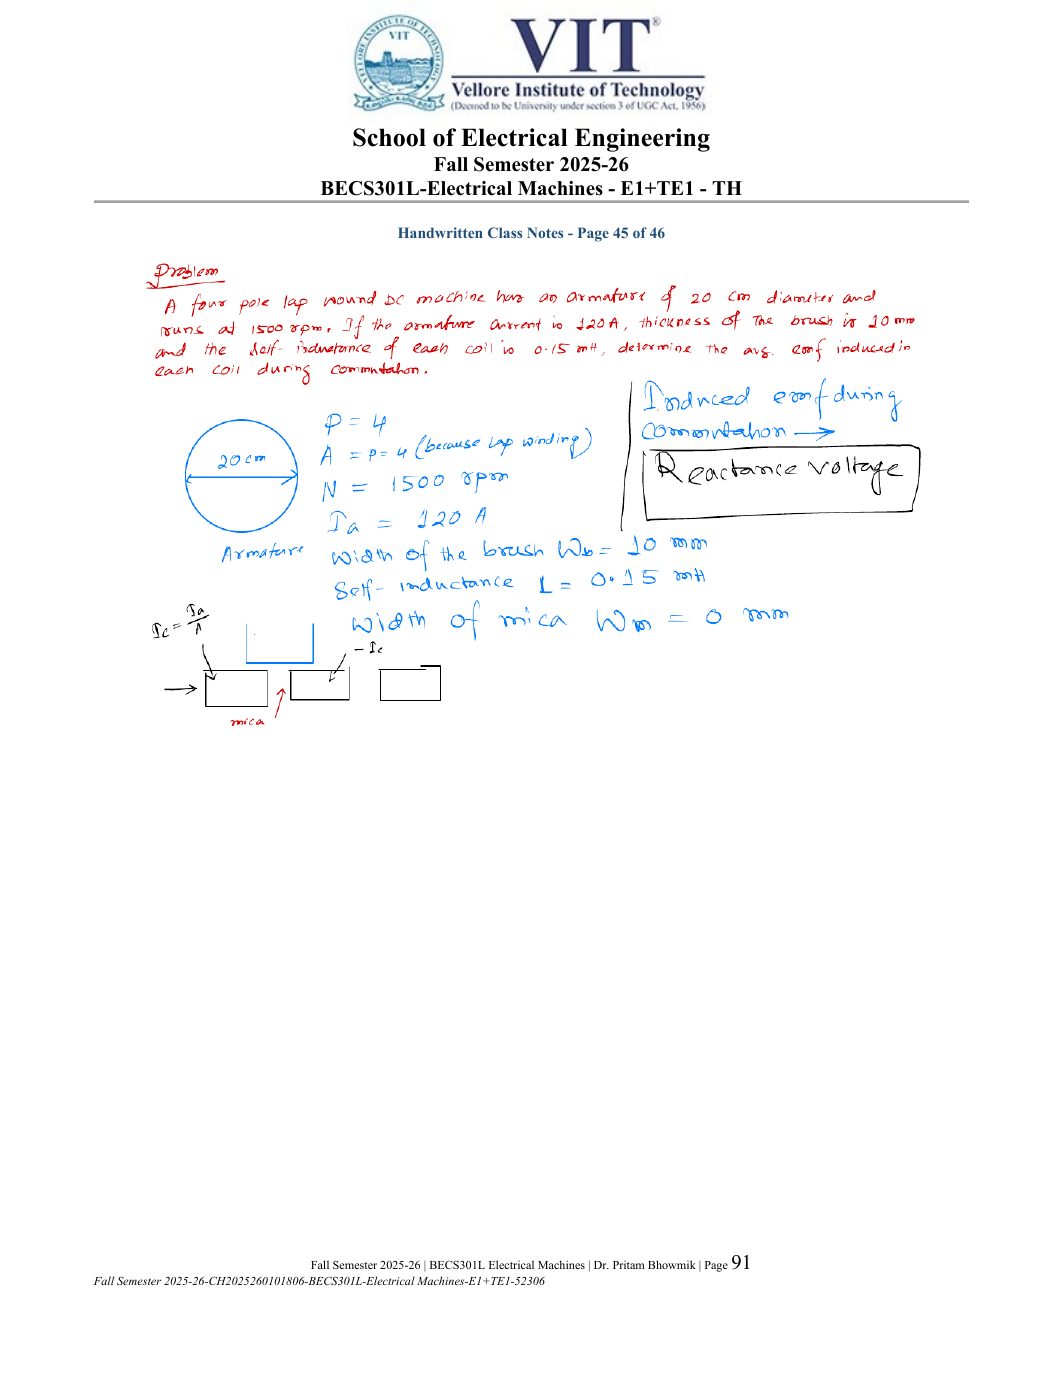 VELLORE INSTITUTE OF TECHNOLOGY
VIT
VIT®
Vellore Institute of Technology
(Deemed to be University under section 3 of UGC Act, 1956)
School of Electrical Engineering
Fall Semester 2025-26
BECS301L-Electrical Machines - E1+TE1 - TH
Handwritten Class Notes - Page 45 of 46
Problem
A four pole lap wound DC machine has an armature of 20 cm diameter and
runs at 1500 rpm. If the armature current is 120 A, thickness of the brush is 10 mm
and the self-inductance of each coil is 0.15 mH, determine the avg. emf induced in
each coil during commutation.
Induced emf during
commutation →
Reactance voltage
20 cm
Armature
P = 4
A = P = 4 (because lap winding)
N = 1500 rpm
Ia = 120 A
Width of the brush Wb = 10 mm
Self-inductance L = 0.15 mH
Width of mica Wm = 0 mm
Ic = Ia/A
- Ic
mica
Fall Semester 2025-26 | BECS301L Electrical Machines | Dr. Pritam Bhowmik | Page 91
Fall Semester 2025-26-CH2025260101806-BECS301L-Electrical Machines-E1+TE1-52306